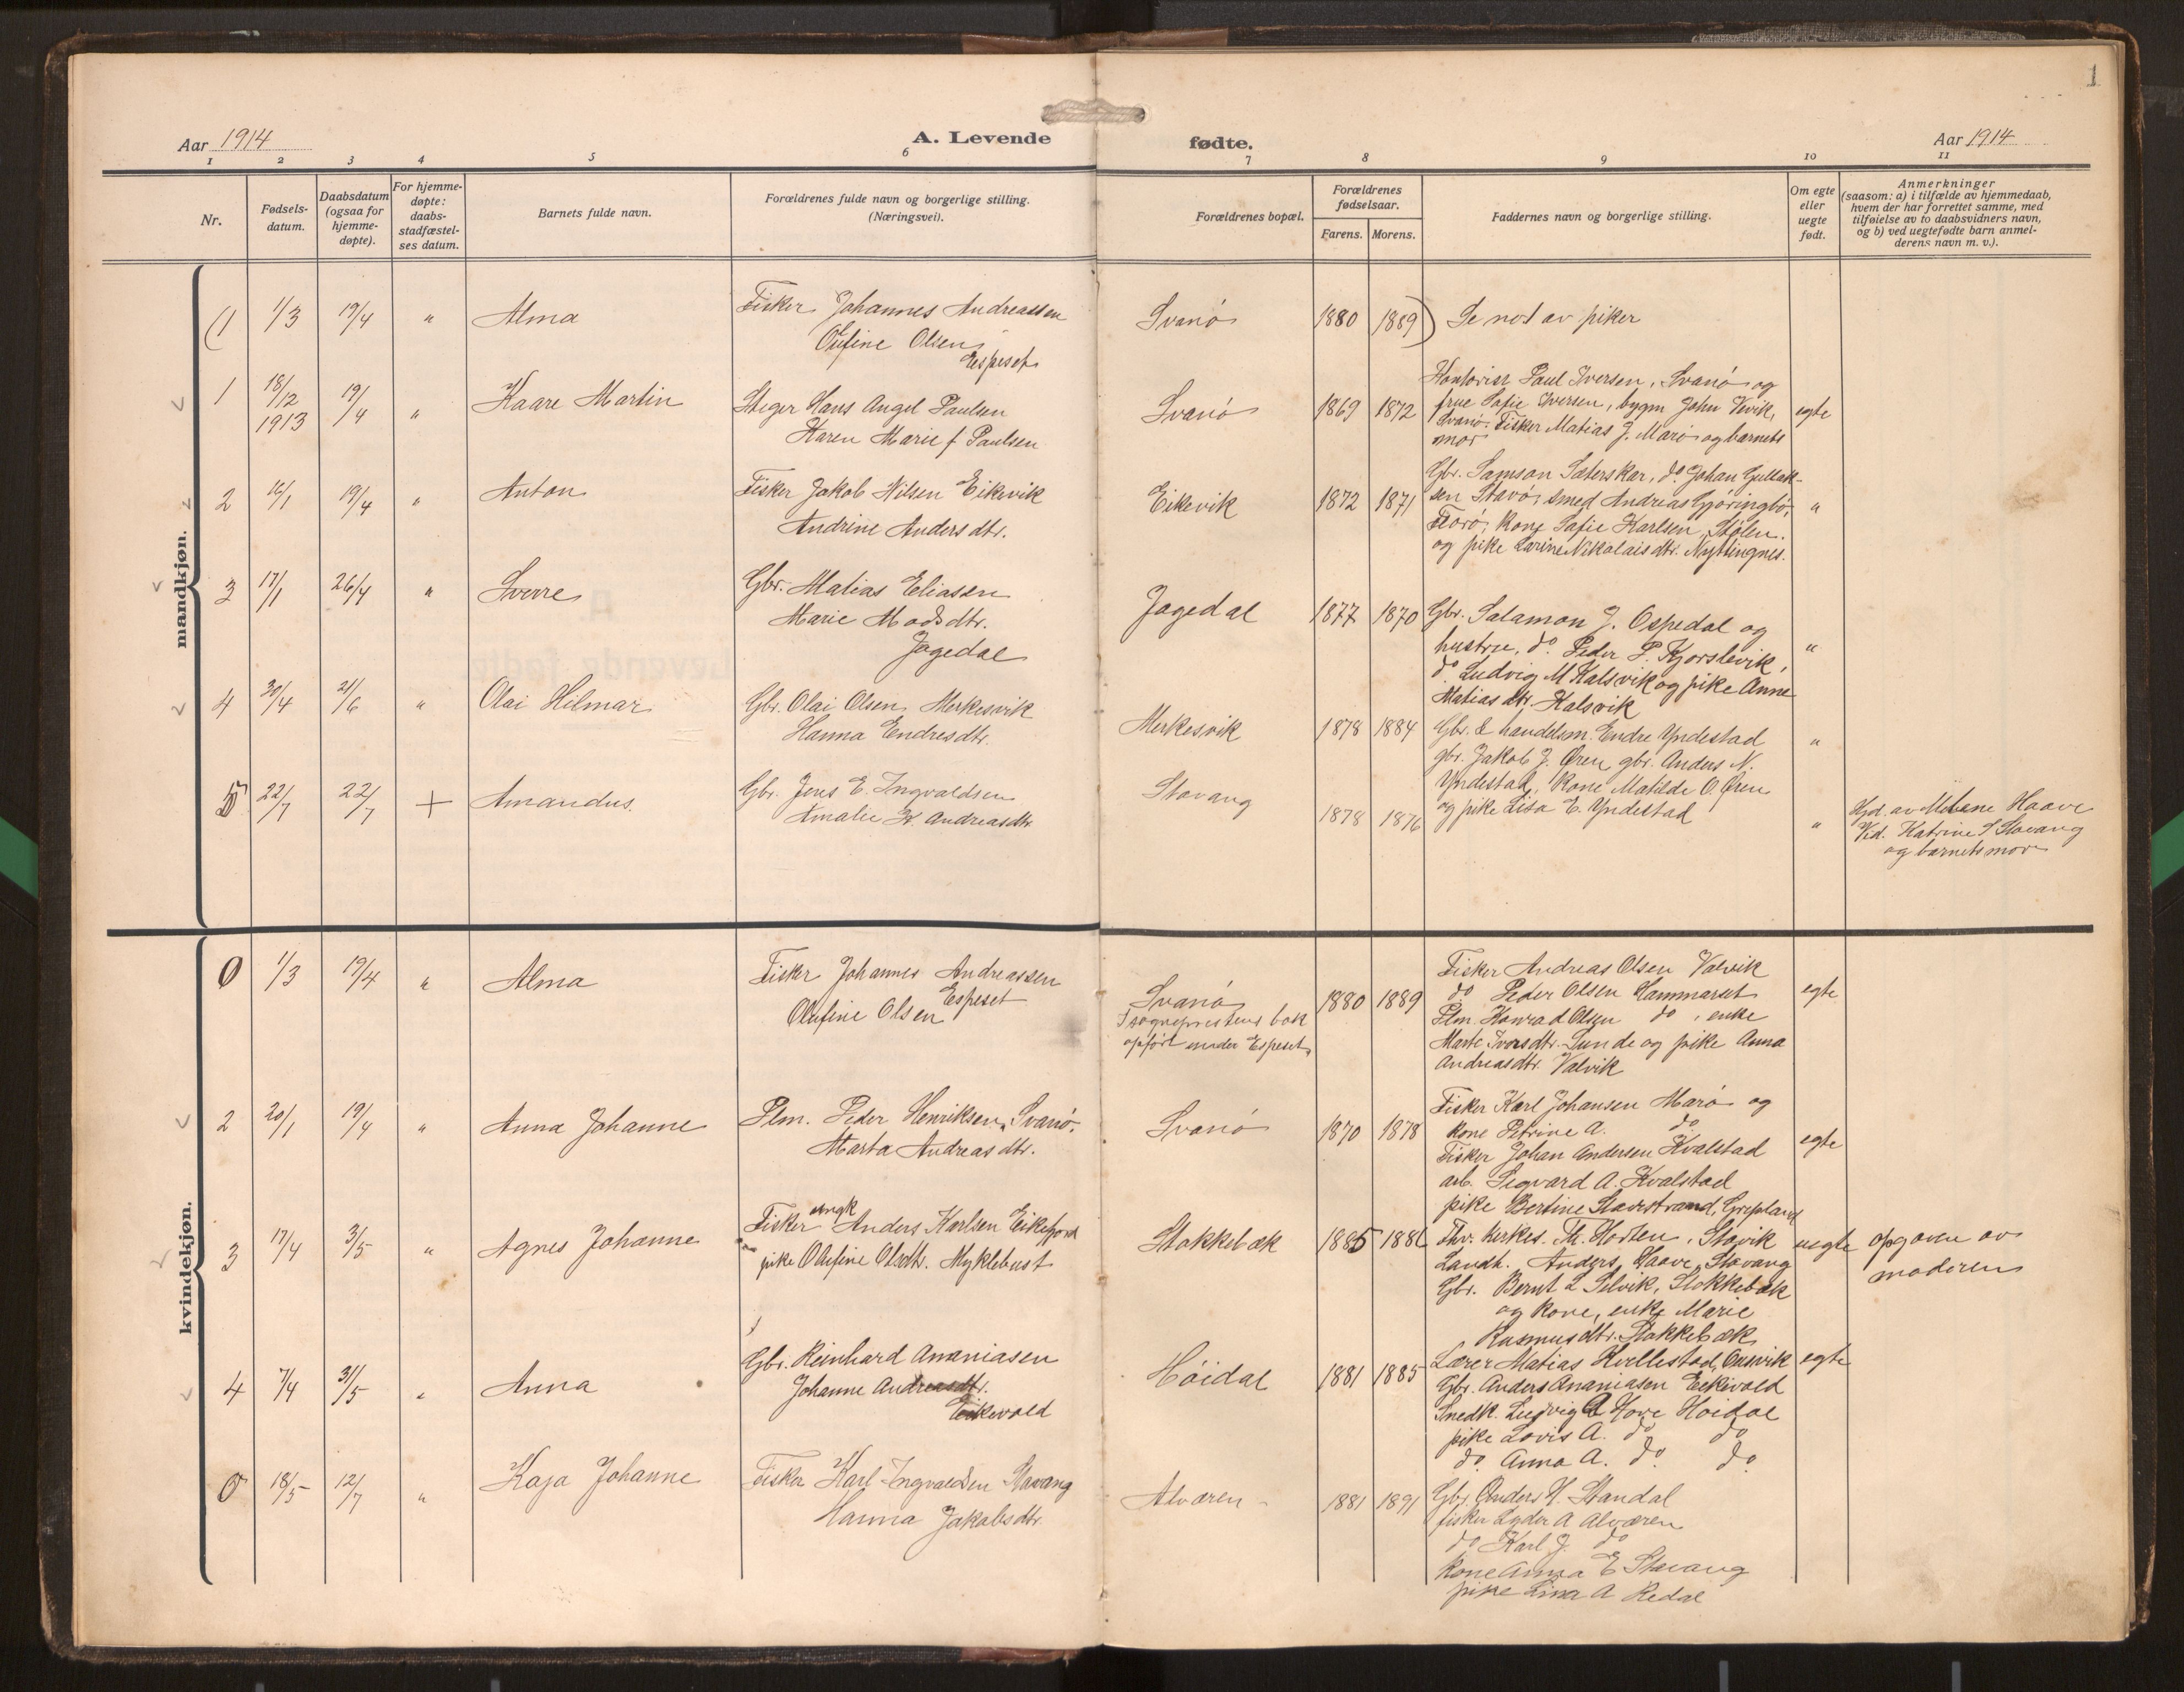 1
Aar 1914
A. Levende fødte.
Aar 1914
1 2 3 4 5 6 7 8 9 10 11
Nr.
Fødsels-
datum.
Daabsdatum
(ogsaa for
hjemme-
døpte).
For hjemme-
døpte:
daabs-
stadfæstel-
ses datum.
Barnets fulde navn.
Forældrenes fulde navn og borgerlige stilling.
(Næringsvei).
Forældrenes bopæl.
Forældrenes
fødselsaar.
Farens. Morens.
Faddernes navn og borgerlige stilling.
Om egte
eller
uegte
født.
Anmerkninger
(saasom: a) i tilfælde av hjemmedaab,
hvem der har forrettet samme, med
tilføielse av to daabsvidners navn,
og b) ved uegtefødte barn anmel-
derens navn m. v.).
mandkjøn.
(1 1/3 19/4 " Alma
Fisker Johannes Andreassen
Olufine Olsen
Espeset
Svanö 1880 1889) Se not av piker
1 18/12 1913 19/4 " Kaare Martin
Steger Hans Angel Paulsen
Karen Marie f Paulsen
Svanö 1869 1872
Kontorist Paul Iversen, Svanö og
frue Sofie Iversen, bygm John Vevik,
Svanö. Fisker Matias J. Marö og barnets
mor
egte
2 16/1 19/4 " Anton
Fisker Jakob Nilsen Eikevik
Andrine Andersdtr.
Eikevik 1872 1871
Gbr. Samson Sæterskar, do. Johan Gullak-
sen Stavö, smed Andreas Gjöringbö,
Florö, kone Sofie Karlsen, Stölen.
og pike Karine Nikolaisdtr. Nyttingnes.
"
3 17/1 26/4 " Sverre
Gbr. Matias Eliasen
Marie Madsdtr.
Jagedal
Jagedal 1877 1870
Gbr. Salamon J. Ospedal og
hustru, do. Peder P. Kjorslevik,
do Ludvig M Kalsvik og pike Anne
Matiasdtr. Kalsvik
"
4 30/4 21/6 " Olai Hilmar
Gbr. Olai Olsen Merkesvik
Hanna Endresdtr.
Merkesvik 1878 1884
Gbr. & handelsm. Endre Yndestad
gbr. Jakob J. Øren gbr. Anders N.
Yndestad, kone Matilde O. Øren
og pike Lisa E. Yndestad
"
5 22/7 22/7 + Amandus.
Gbr. Jens E. Ingvaldsen
Amalie K. Andreasdtr.
Stavang 1878 1876 "
Hjd. av Milene Haave
Vid. Katrine S Stavang
og barnets mor
kvindekjøn.
0 1/3 19/4 " Alma
Fisker Johannes Andreassen
Espeset
Olufine Olsen
Svanö
I sogneprestens bok
opfört under Espeset.
1880 1889
Fisker Andreas Olsen Valvik
do Peder Olsen Hammarset
Plm. Konrad Olsen do, enke
Marte Ivarsdtr. Lunde og pike Anna
Andreasdtr. Valvik
egte
2 20/1 19/4 " Anna Johanne
Plm. Peder Henriksen, Svanö.
Marta Andreasdtr.
Svanö 1870 1878
Fisker Karl Johansen Marö og
kone Petrine A. do
Fisker Johan Andersen Kvalstad
arb. Segvard A. Kvalstad
pike Bertine Stavestrand, Grepland
egte
3 17/4 3/5 " Agnes Johanne
Fisker ungk Anders Karlsen Eikefjord
pike Olufine Olsdtr. Myklebust
Stokkebæk 1885 1886
Fhv. kirkes. Th. Horten, Stavik
Landh. Anders Haave, Stavang
Gbr. Bernt L Selvik, Stokkebæk
og kone, enke Marie
Rasmusdtr. Stokkebæk
uegte
opgaven av
moderen
4 7/4 31/5 " Anna
Gbr. Reinhard Ananiasen
Johanne Andreasdtr.
Eikevold
Höidal 1881 1885
Lærer Matias Hvellestad,
Gbr. Anders Ananiasen Eikevold
Snedk. Ludvig A Hove Höidal
pike Lovis A. do do
do. Anna A. do do
egte
0 18/5 12/7 " Kaja Johanne
Fisker Karl Ingvaldsen Stavang
Hanna Jakobsdtr.
Alværen 1881 1891
Gbr. Anders H. Standal
fisker Lyder A Alværen
do Karl J. do
kone Anna E Stavang
pike Lina A Redal